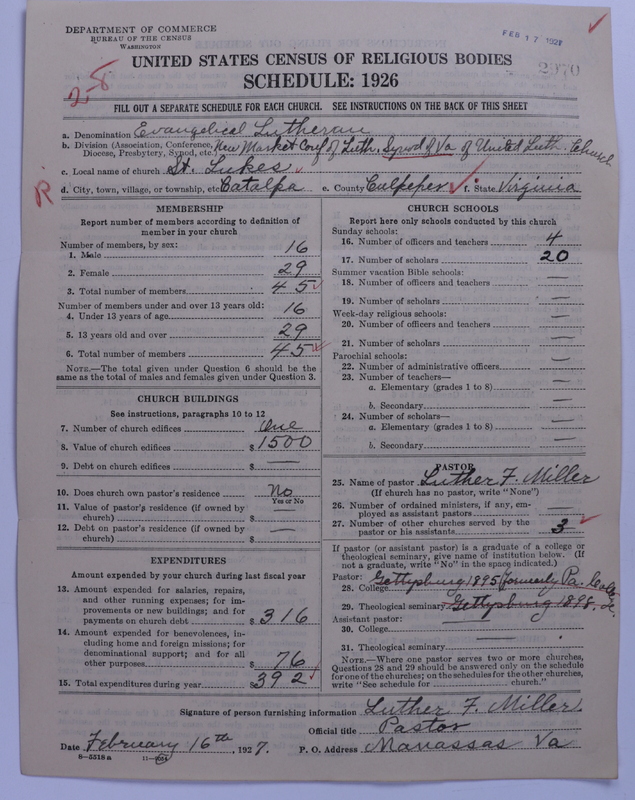 DEPARTMENT OF COMMERCE
BUREAU OF THE CENSUS
WASHINGTON
FEB 17 1927
2970
UNITED STATES CENSUS OF RELIGIOUS BODIES
SCHEDULE: 1926
2-8
FILL OUT A SEPARATE SCHEDULE FOR EACH CHURCH. SEE INSTRUCTIONS ON THE BACK OF THIS SHEET
a. Denomination Evangelical Lutheran
b. Division (Association, Conference, Diocese, Presbytery, Synod, etc.) New Market Conf of Luth. Synod of Va of United Luth. Church
c. Local name of church St. Lukes
R
d. City, town, village, or township, etc. Catalpa e. County Culpeper f. State Virginia
MEMBERSHIP
Report number of members according to definition of
member in your church
Number of members, by sex:
1. Male 16
2. Female 29
3. Total number of members 45
Number of members under and over 13 years old:
4. Under 13 years of age 16
5. 13 years old and over 29
6. Total number of members 45
NOTE.—The total given under Question 6 should be
same as the total of males and females given under Question 3.
CHURCH BUILDINGS
See instructions, paragraphs 10 to 12
7. Number of church edifices One
8. Value of church edifices $1500
9. Debt on church edifices $ —
10. Does church own pastor's residence No
Yes or No
11. Value of pastor's residence (if owned by
church) $ —
12. Debt on pastor's residence (if owned by
church) $ —
EXPENDITURES
Amount expended by your church during last fiscal year
13. Amount expended for salaries, repairs,
and other running expenses; for im-
provements or new buildings; and for
payments on church debt $316
14. Amount expended for benevolences, in-
cluding home and foreign missions; for
denominational support; and for all
other purposes $76
15. Total expenditures during year $392
CHURCH SCHOOLS
Report here only schools conducted by this church
Sunday schools:
16. Number of officers and teachers 4
17. Number of scholars 20
Summer vacation Bible schools:
18. Number of officers and teachers —
19. Number of scholars —
Week-day religious schools:
20. Number of officers and teachers —
21. Number of scholars —
Parochial schools:
22. Number of administrative officers —
23. Number of teachers—
a. Elementary (grades 1 to 8) —
b. Secondary —
24. Number of scholars—
a. Elementary (grades 1 to 8) —
b. Secondary —
PASTOR
25. Name of pastor Luther F. Miller
(If church has no pastor, write "None")
26. Number of ordained ministers, if any, em-
ployed as assistant pastors —
27. Number of other churches served by the
pastor or his assistants 3
If pastor (or assistant pastor) is a graduate of a college or
theological seminary, give name of institution below. (If
not a graduate, write "No" in the space indicated.)
Pastor:
28. College Gettysburg 1895 (formerly Pa. College
29. Theological seminary Gettysburg 1898.
Assistant pastor:
30. College —
31. Theological seminary —
NOTE.—Where one pastor serves two or more churches,
Questions 28 and 29 should be answered only on the schedule
for one of the churches; on the schedules for the other churches,
write "See schedule for church."
Signature of person furnishing information Luther F. Miller.
Official title Pastor
Date February 16th, 1927. P. O. Address Manassas Va
8—5518a